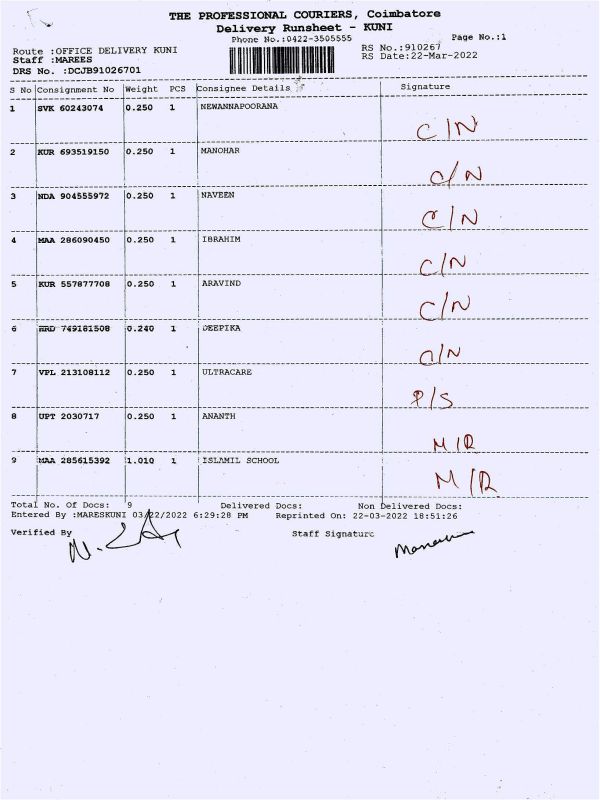 THE PROFESSIONAL COURIERS, Coimbatore
Delivery Runsheet - KUNI
Phone No.:0422-3505555
Page No.:1
Route :OFFICE DELIVERY KUNI
RS No.:910267
Staff :MAREES
RS Date:22-Mar-2022
DRS No. :DCJB91026701
S No Consignment No Weight PCS Consignee Details Signature
1 SVK 60243074 0.250 1 NEWANNAPOORANA C/N
2 KUR 693519150 0.250 1 MANOHAR C/N
3 NDA 904555972 0.250 1 NAVEEN C/N
4 MAA 286090450 0.250 1 IBRAHIM C/N
5 KUR 557877708 0.250 1 ARAVIND C/N
6 HRD 749181508 0.240 1 DEEPIKA C/N
7 VPL 213108112 0.250 1 ULTRACARE P/S
8 UPT 2030717 0.250 1 ANANTH M/R
9 MAA 285615392 1.010 1 ISLAMIL SCHOOL M/R
Total No. Of Docs: 9 Delivered Docs: Non Delivered Docs:
Entered By :MARESKUNI 03/22/2022 6:29:28 PM Reprinted On: 22-03-2022 18:51:26
Verified By Staff Signature